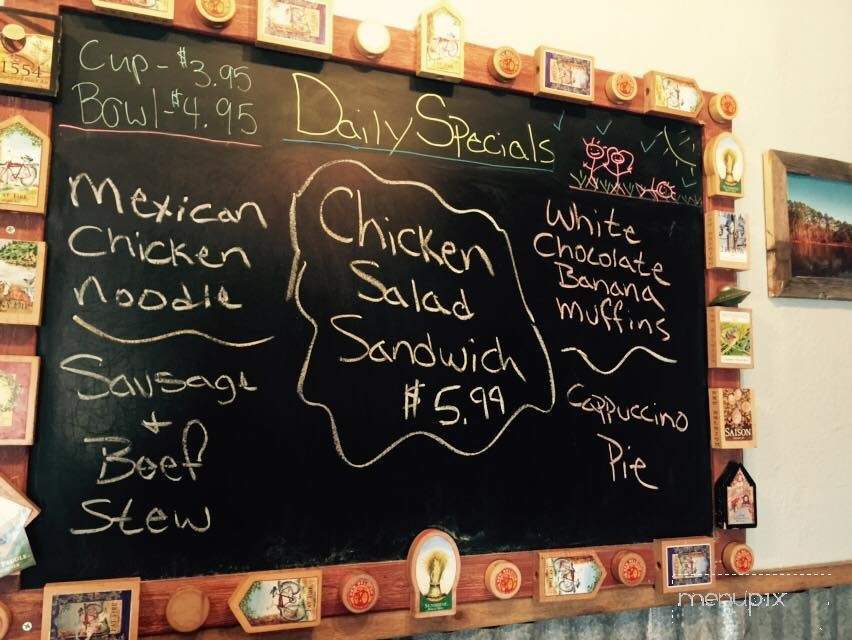 Daily Specials
Cup - $3.95
Bowl - $4.95
Mexican
Chicken
Noodle
Sausage
+
Beef
Stew
Chicken
Salad
Sandwich
$5.99
White
Chocolate
Banana
Muffins
Cappuccino
Pie
1554
SAISON
SUNSHINE
menupix